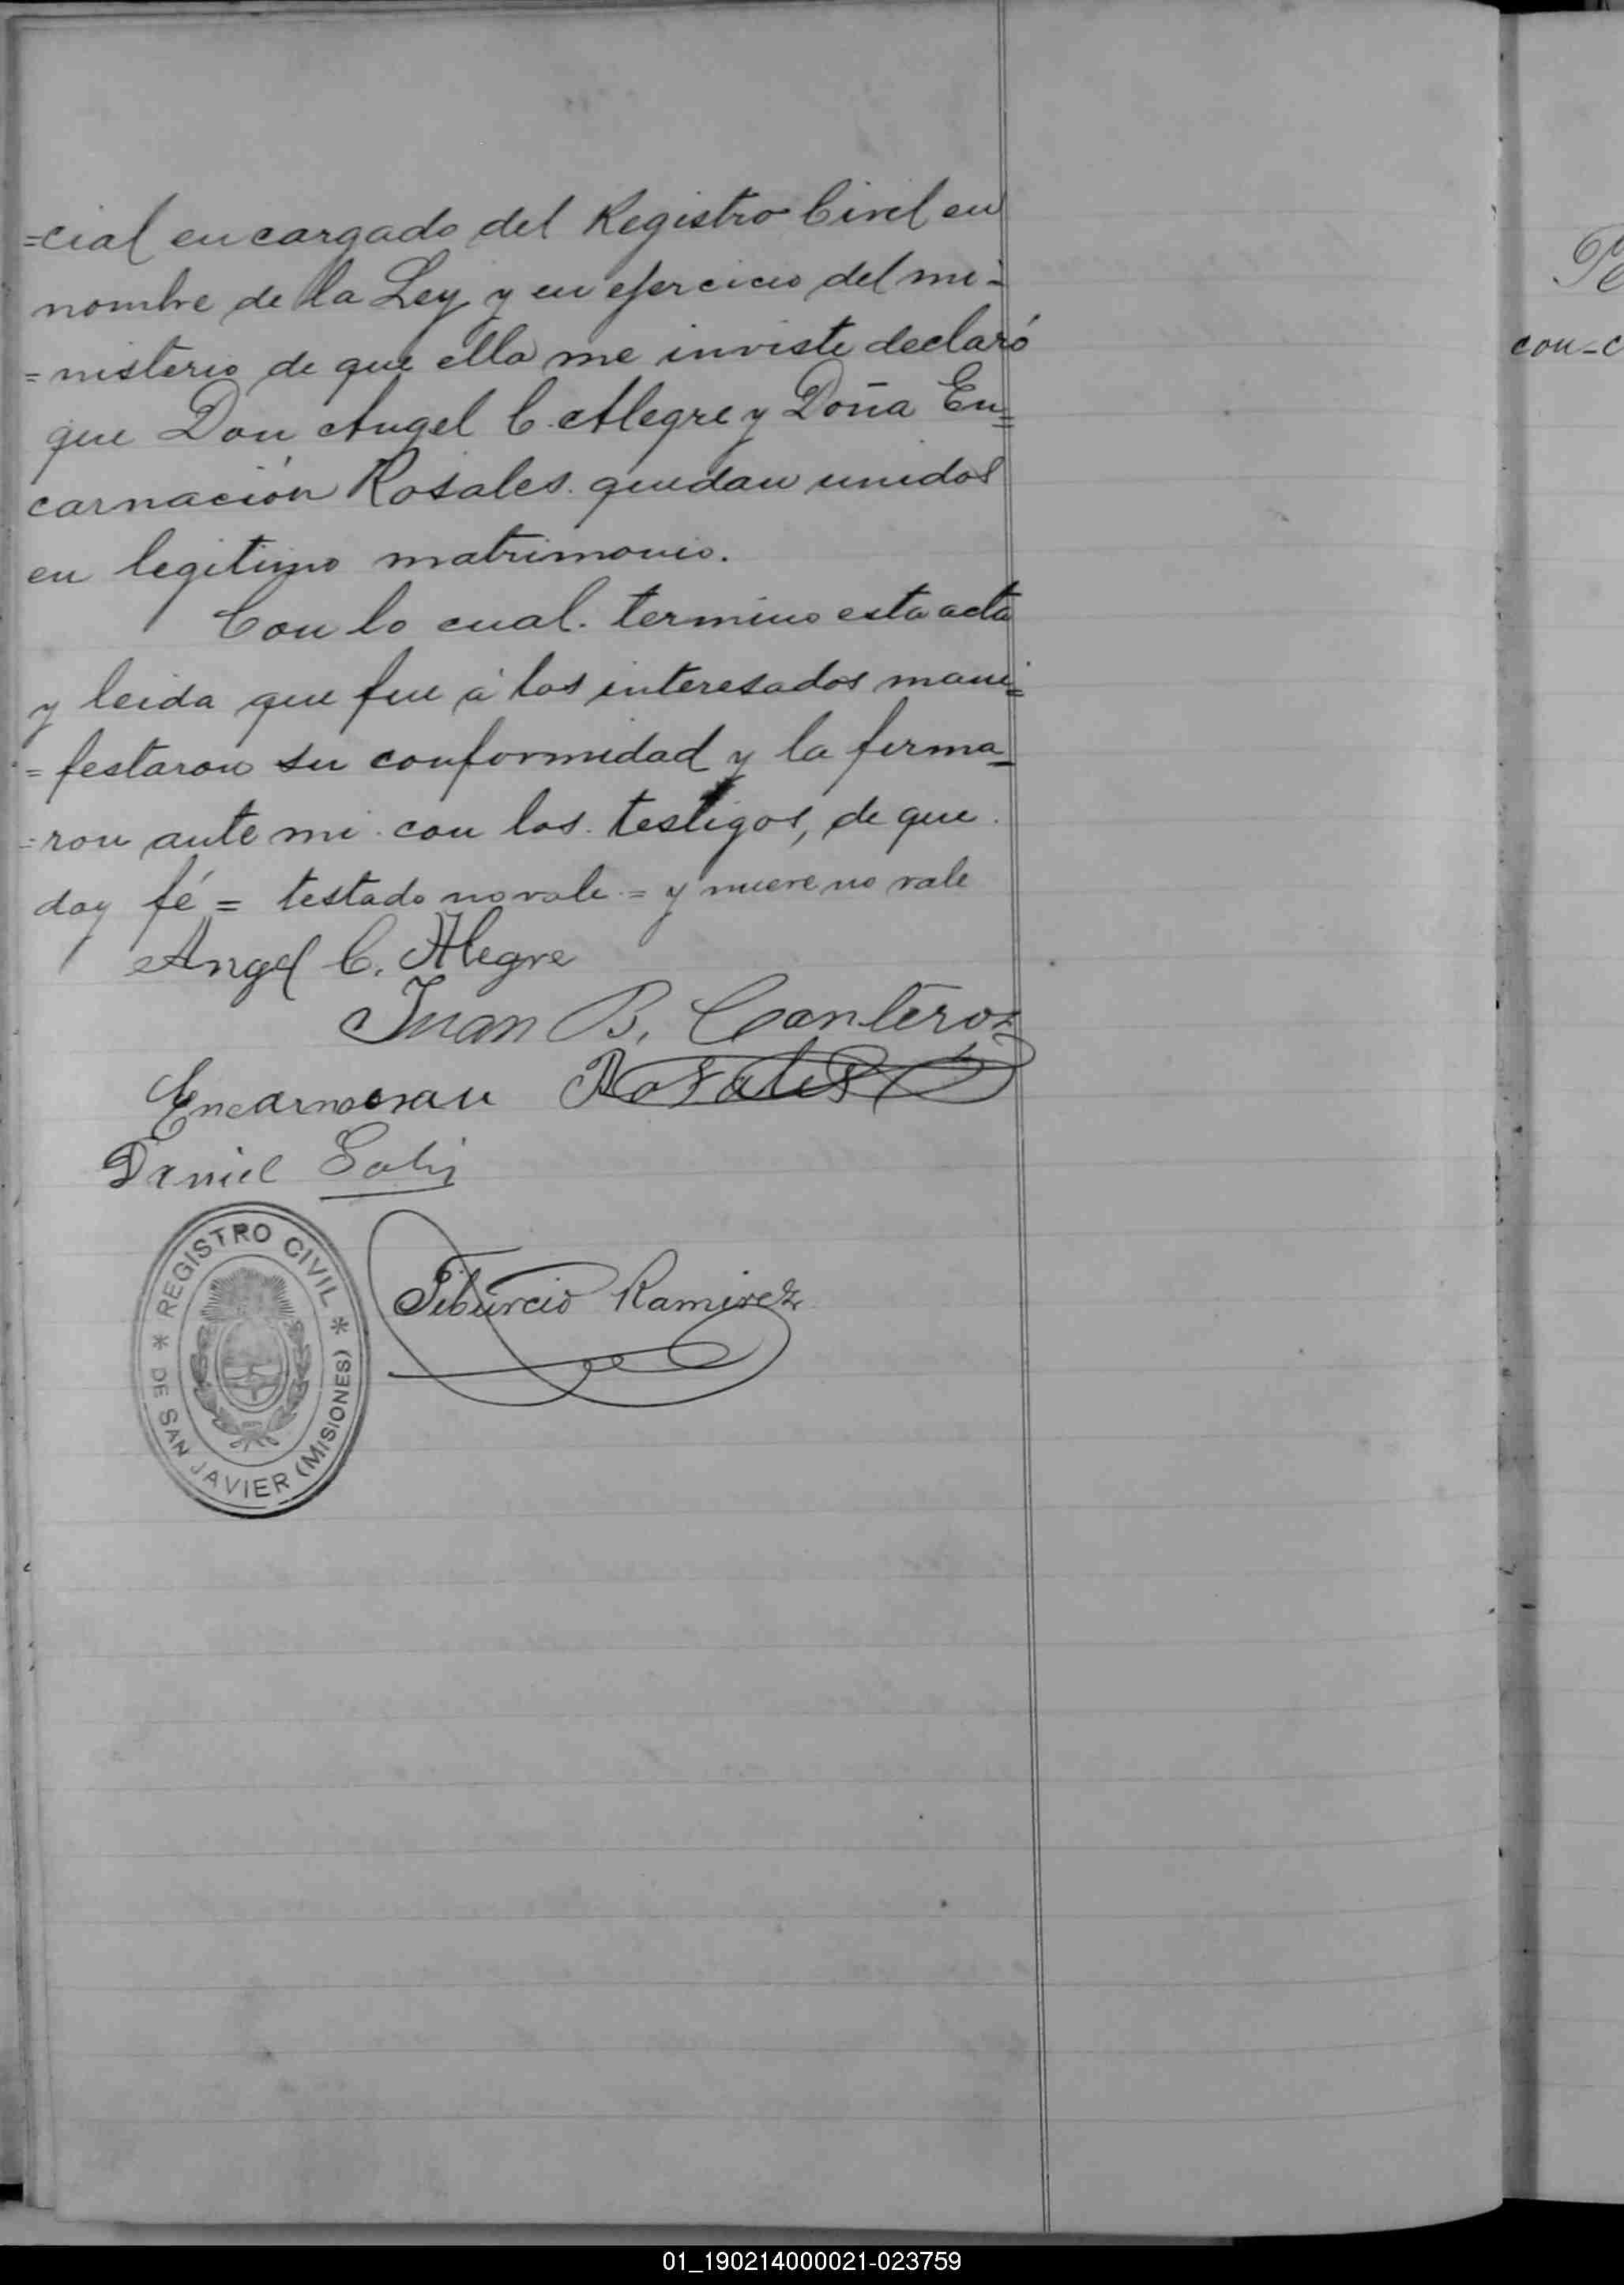 =cial encargado del Registro Civil en
nombre de la Ley y en ejercicio del mi=
=nisterio de que ella me inviste declaró
que Don Angel C. Alegre y Doña En=
carnación Rosales. quedan unidos
en legitimo matrimonio.
Con lo cual. termino esta acta
y leida que fue á los interesados mani=
=festaron su conformidad y la firma=
=ron ante mi con los testigos, de que
doy fé = testado no vale = y nueve no vale
Angel C. Alegre
Juan B. Canteros
Encarnacion Rosales
Daniel Solis
REGISTRO CIVIL * DE SAN JAVIER (MISIONES) *
Tiburcio Ramirez
con-c
01_190214000021-023759